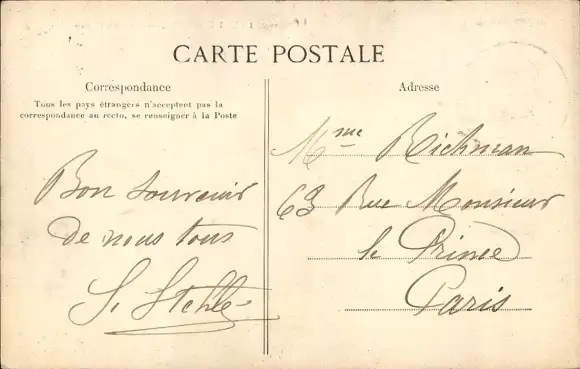 CARTE POSTALE
Correspondance
Tous les pays étrangers n'acceptent pas la
correspondance au recto, se renseigner à la Poste
Bon souvenir
de nous tous
S. Stehlé
Adresse
Mme Richman
63 Rue Monsieur
le Prince
Paris